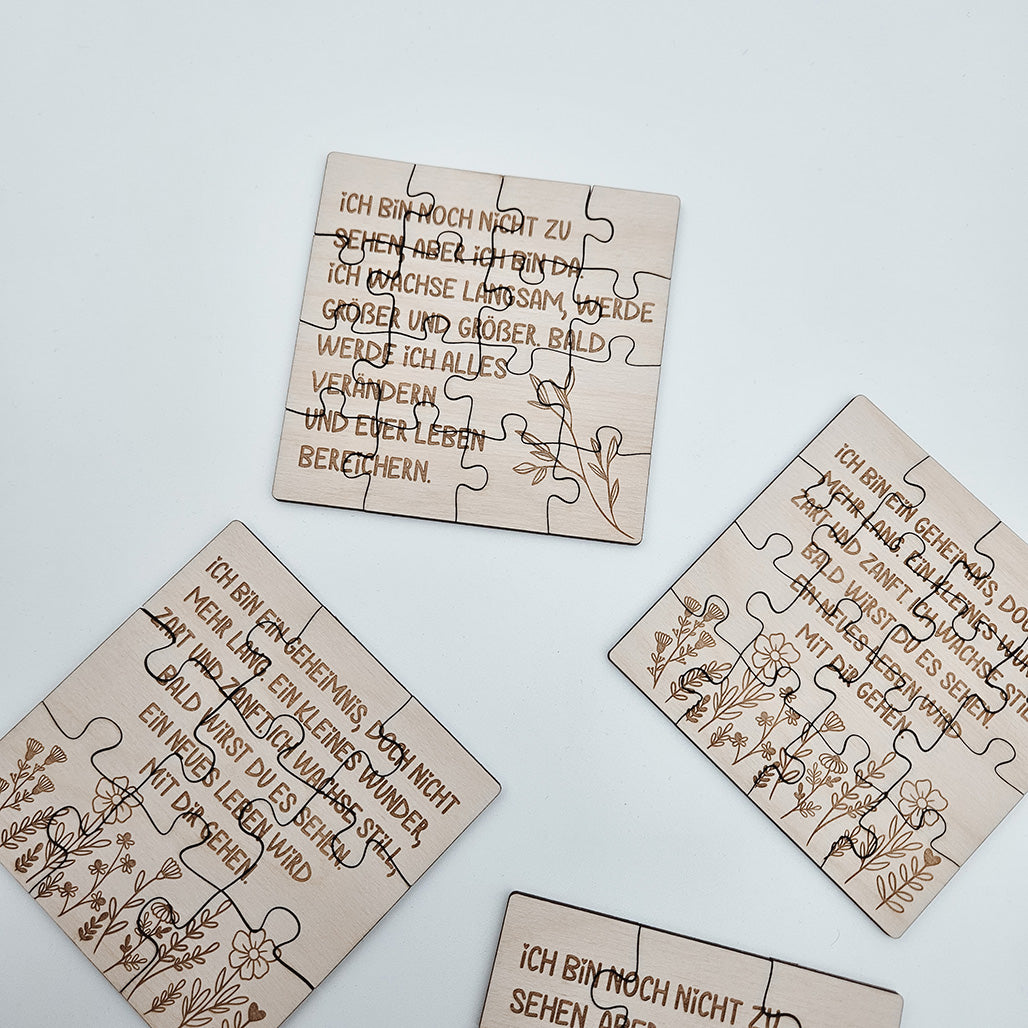 ICH BIN NOCH NICHT ZU
SEHEN, ABER ICH BIN DA.
ICH WACHSE LANGSAM, WERDE
GRÖßER UND GRÖßER. BALD
WERDE ICH ALLES
VERÄNDERN
UND EUER LEBEN
BEREICHERN.
ICH BIN EIN GEHEIMNIS, DOCH NICHT
MEHR LANG. EIN KLEINES WUNDER,
ZART UND ZANFT. ICH WACHSE STILL,
BALD WIRST DU ES SEHEN.
EIN NEUES LEBEN WIRD
MIT DIR GEHEN.
ICH BIN EIN GEHEIMNIS, DOC
MEHR LANG. EIN KLEINES WUN
ZART UND ZANFT. ICH WACHSE STI
BALD WIRST DU ES SEHEN
EIN NEUES LEBEN WIRD
MIT DIR GEHEN.
ICH BIN NOCH NICHT ZU
SEHEN, ABER